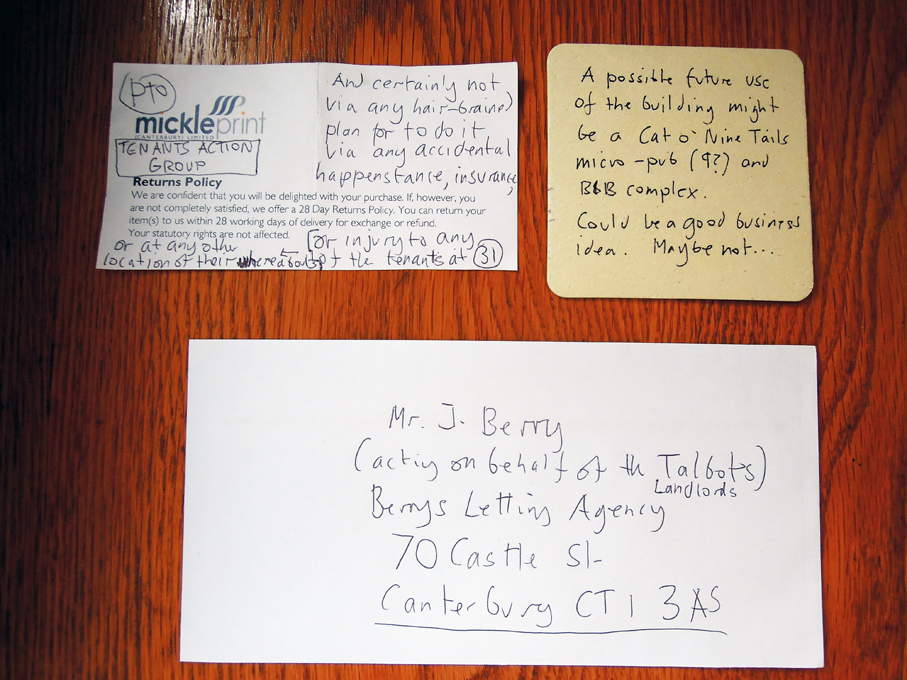 PTO
mickleprint
(CANTERBURY) LIMITED
TENANTS ACTION
GROUP
Returns Policy
We are confident that you will be delighted with your purchase. If, however, you
are not completely satisfied, we offer a 28 Day Returns Policy. You can return your
item(s) to us within 28 working days of delivery for exchange or refund.
Your statutory rights are not affected.
And certainly not
via any hair-brained
plan for to do it
via any accidental
happenstance, insurance,
or injury to any
of the tenants at 31
or at any other
location of their whereabouts
A possible future use
of the building might
be a Cat o' Nine Tails
micro-pub (9?) and
B&B complex.
Could be a good business
idea. Maybe not...
Mr. J. Berry
(acting on behalf of the Talbots)
Landlords
Berrys Letting Agency
70 Castle St
Canterbury CT1 3AS